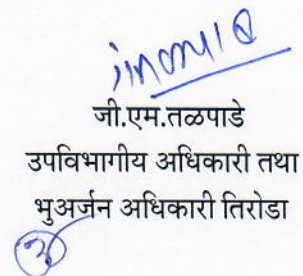 जी.एम.तळपाडे
उपविभागीय अधिकारी तथा
भुअर्जन अधिकारी तिरोडा